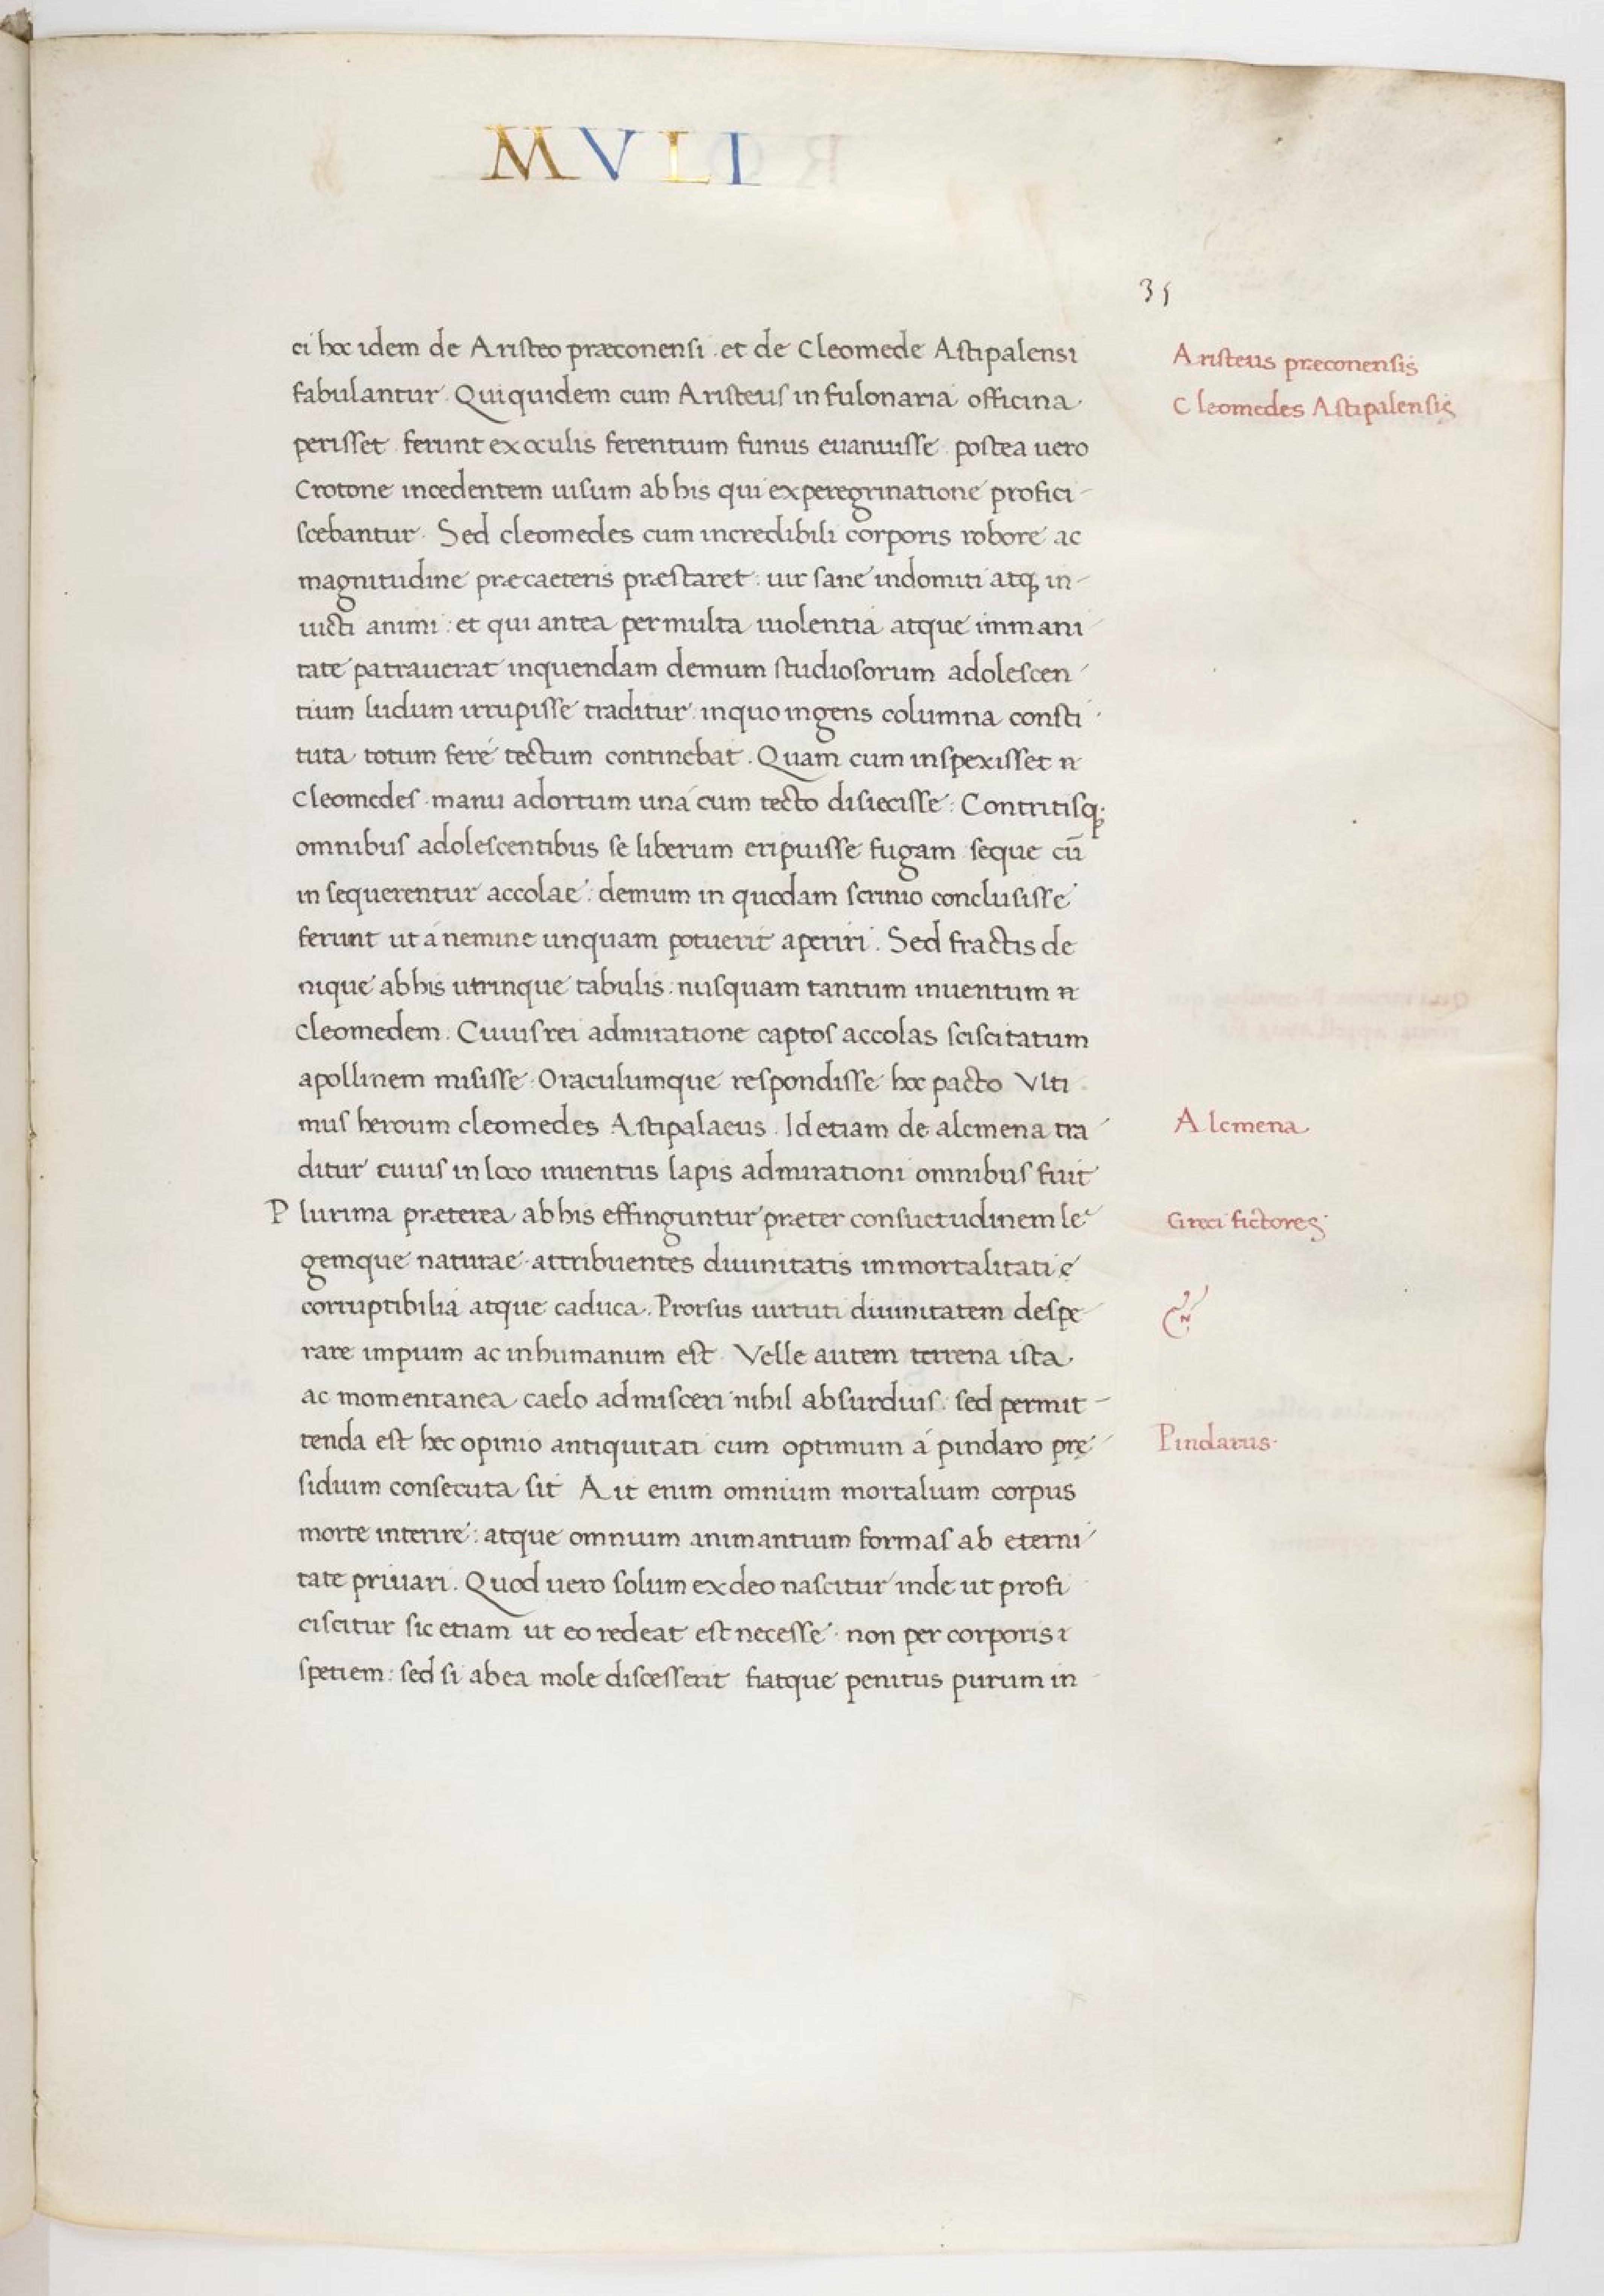 MVLI
35
ci hoc idem de Aristeo præconensi. et de Cleomede Astipalensi
Aristeus præconensis
fabulantur. Qui quidem cum Aristeus in fulonaria officina
Cleomedes Astipalensis
perisset ferunt ex oculis ferentium funus euanuisse. postea uero
Crotone incedentem uisum ab his qui ex peregrinatione profici-
scebantur. Sed cleomedes cum incredibili corporis robore ac
magnitudine præcaeteris præstaret: uir sane indomiti atq; in-
uicti animi: et qui antea permulta uiolentia atque immani
tate patrauerat inquendam demum studiosorum adolescen
tium ludum irrupisse traditur. inquo ingens columna consti
tuta totum feré tectum continebat. Quam cum inspexisset n
Cleomedes. manu adortum uná cum tecto disiecisse: Contritisq;
omnibus adolescentibus se liberum eripuisse fugam seque cū
in sequerentur accolae: demum in quodam scrinio conclusisse
ferunt ut á nemine unquam potuerit aperiri. Sed fractis de
nique ab his utrinque tabulis. nusquam tantum inuentum n
cleomedem. Cuius rei admiratione captos accolas sciscitatum
apollinem misisse. Oraculumque respondisse hoc pacto Vlti
mus heroum cleomedes Astipalaeus. Id etiam de alcmena tra
Alcmena
ditur cuius in loco inuentus lapis admirationi omnibus fuit
Plurima præterea ab his effinguntur præter consuetudinem le
Greci fictores
gemque naturae. attribuentes diuinitatis immortalitati ę
corruptibilia atque caduca. Prorsus uirtuti diuinitatem despe
rare impium ac inhumanum est. Velle autem terrena ista
ac momentanea caelo admisceri nihil absurdius. sed permit-
tenda est hec opinio antiquitati cum optimum á pindaro prę
Pindarus.
sidium consecuta sit Ait enim omnium mortalium corpus
morte interire: atque omnium animantium formas ab eterni
tate priuari. Quod uero solum ex deo nascitur inde ut profi
ciscitur sic etiam ut eo redeat est necesse. non per corporis ı
spetiem: sed si ab ea mole discesserit fiatque penitus purum in